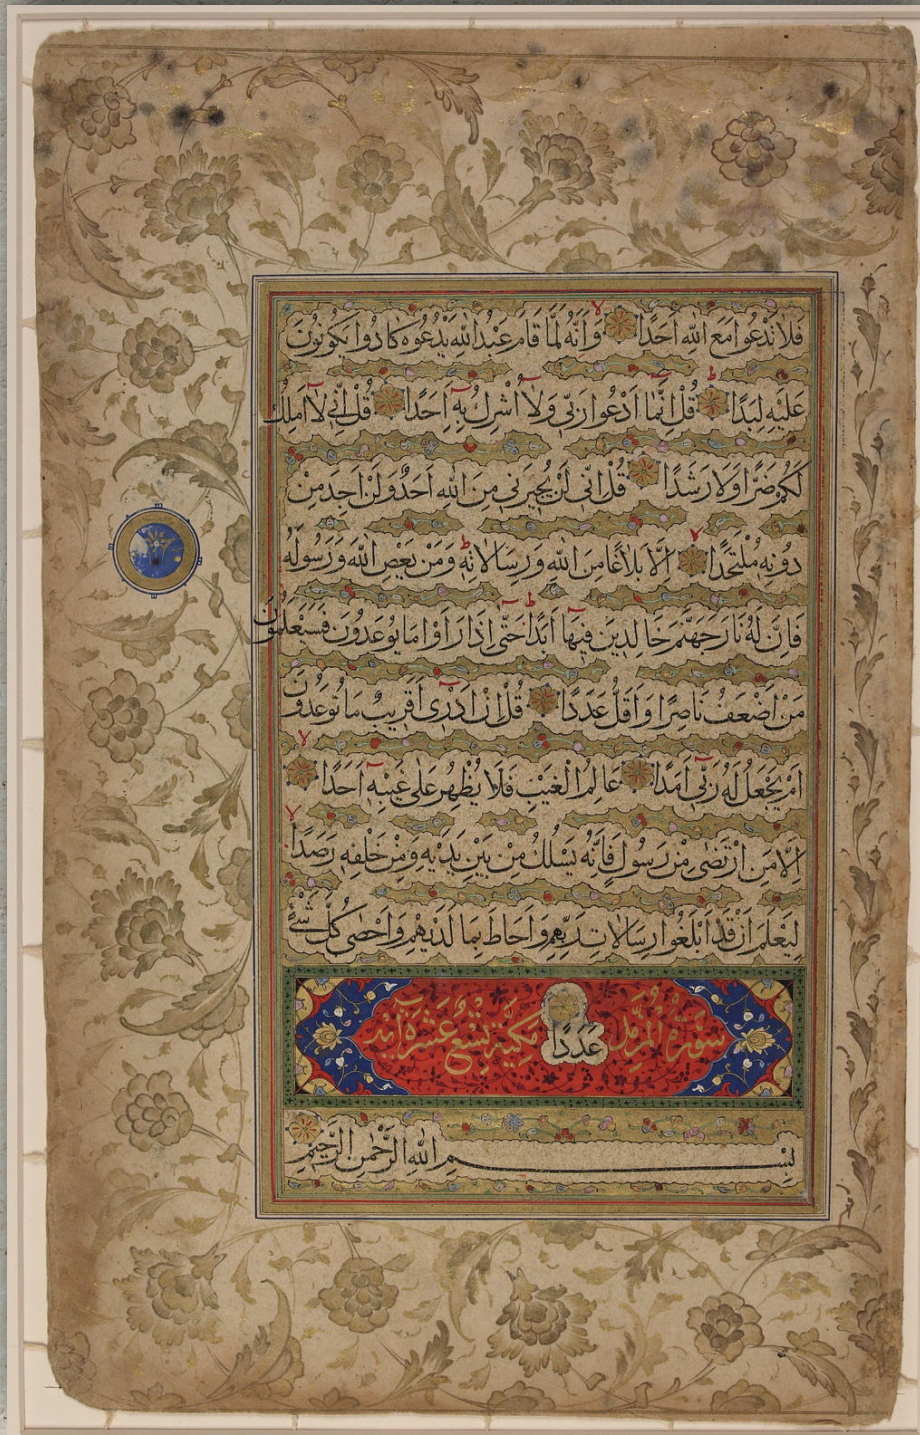 فَلَا تَدْعُوا مَعَ اللّٰهِ اَحَدًا وَاَنَّهُ لَمَّا قَامَ عَبْدُ اللّٰهِ يَدْعُوهُ كَادُوا يَكُونُونَ
عَلَيْهِ لِبَدًا ط قُلْ اِنَّمَا اَدْعُوا رَبّٖي وَلَا اُشْرِكُ بِهٖ اَحَدًا قُلْ اِنّٖي لَا اَمْلِكُ
لَكُمْ ضَرًّا وَلَا رَشَدًا قُلْ اِنّٖي لَنْ يُجٖيرَنٖي مِنَ اللّٰهِ اَحَدٌ وَلَنْ اَجِدَ مِنْ
دُونِهٖ مُلْتَحَدًا لا اِلَّا بَلَاغًا مِنَ اللّٰهِ وَرِسَالَاتِهٖ ط وَمَنْ يَعْصِ اللّٰهَ وَرَسُولَهُ
فَاِنَّ لَهُ نَارَ جَهَنَّمَ خَالِدٖينَ فٖيهَا اَبَدًا ط حَتّٰى اِذَا رَاَوْا مَا يُوعَدُونَ فَسَيَعْلَمُونَ
مَنْ اَضْعَفُ نَاصِرًا وَاَقَلُّ عَدَدًا قُلْ اِنْ اَدْرٖى اَقَرٖيبٌ مَا تُوعَدُونَ
اَمْ يَجْعَلُ لَهُ رَبّٖي اَمَدًا عَالِمُ الْغَيْبِ فَلَا يُظْهِرُ عَلٰى غَيْبِهٖ اَحَدًا لا
اِلَّا مَنِ ارْتَضٰى مِنْ رَسُولٍ فَاِنَّهُ يَسْلُكُ مِنْ بَيْنِ يَدَيْهِ وَمِنْ خَلْفِهٖ رَصَدًا لا
لِيَعْلَمَ اَنْ قَدْ اَبْلَغُوا رِسَالَاتِ رَبِّهِمْ وَاَحَاطَ بِمَا لَدَيْهِمْ وَاَحْصٰى كُلَّ شَيْءٍ
سُورَةُ الْمُزَّمِّلِ عَدَدًا مَكِّيَّةٌ تِسْعُ عَشْرَةَ اٰيَة
بِسْمِ اللّٰهِ الرَّحْمٰنِ الرَّحٖيمِ